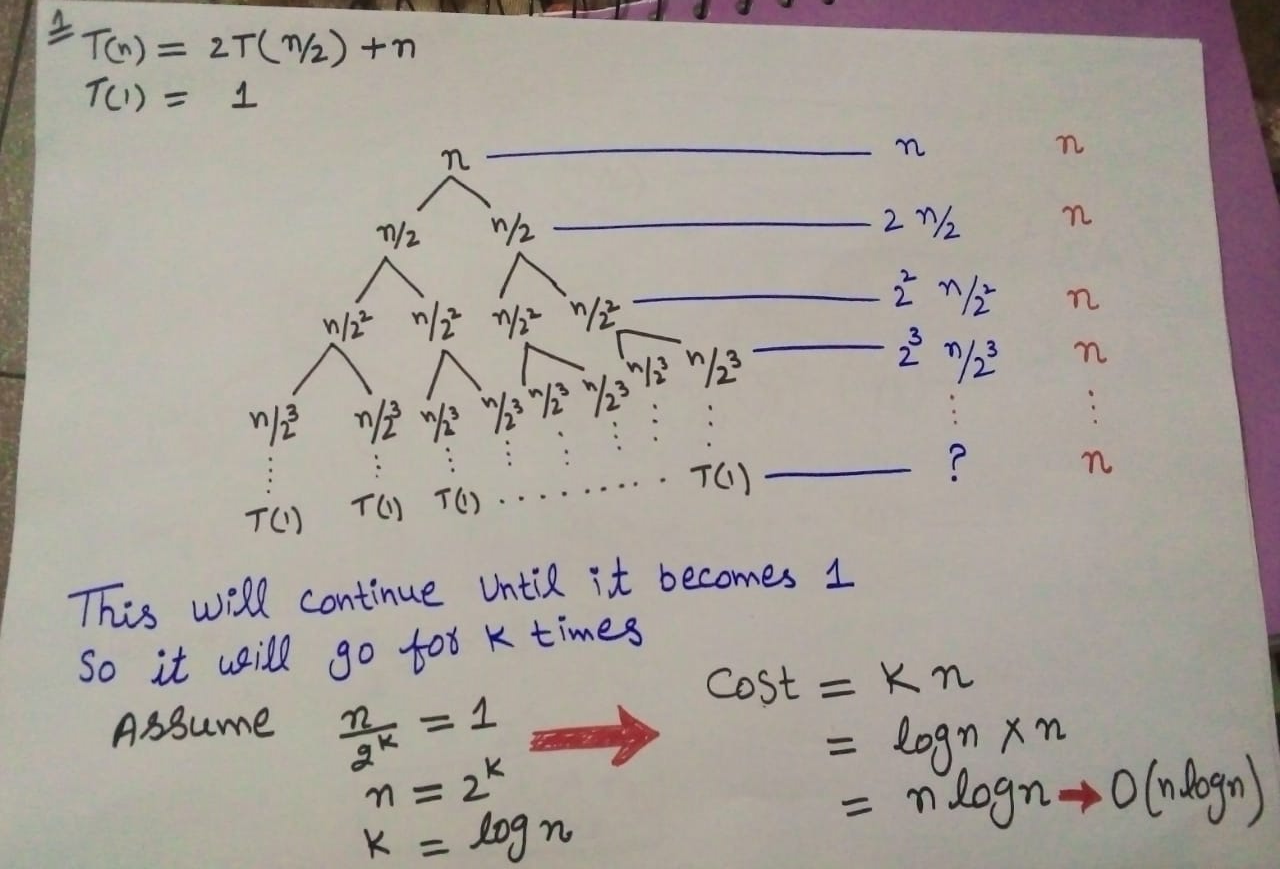 1
T(n) = 2T(n/2) + n
T(1) = 1
n n n
n/2 n/2 2 n/2 n
n/2² n/2² n/2² n/2² 2² n/2² n
n/2³ n/2³ n/2³ n/2³ n/2³ n/2³ n/2³ n/2³ 2³ n/2³ n
T(1) T(1) T(1) .......... T(1) ? n
This will continue Until it becomes 1
So it will go for K times
Assume n/2^K = 1
n = 2^K
K = log n
Cost = K n
= logn × n
= n logn → O(n logn)